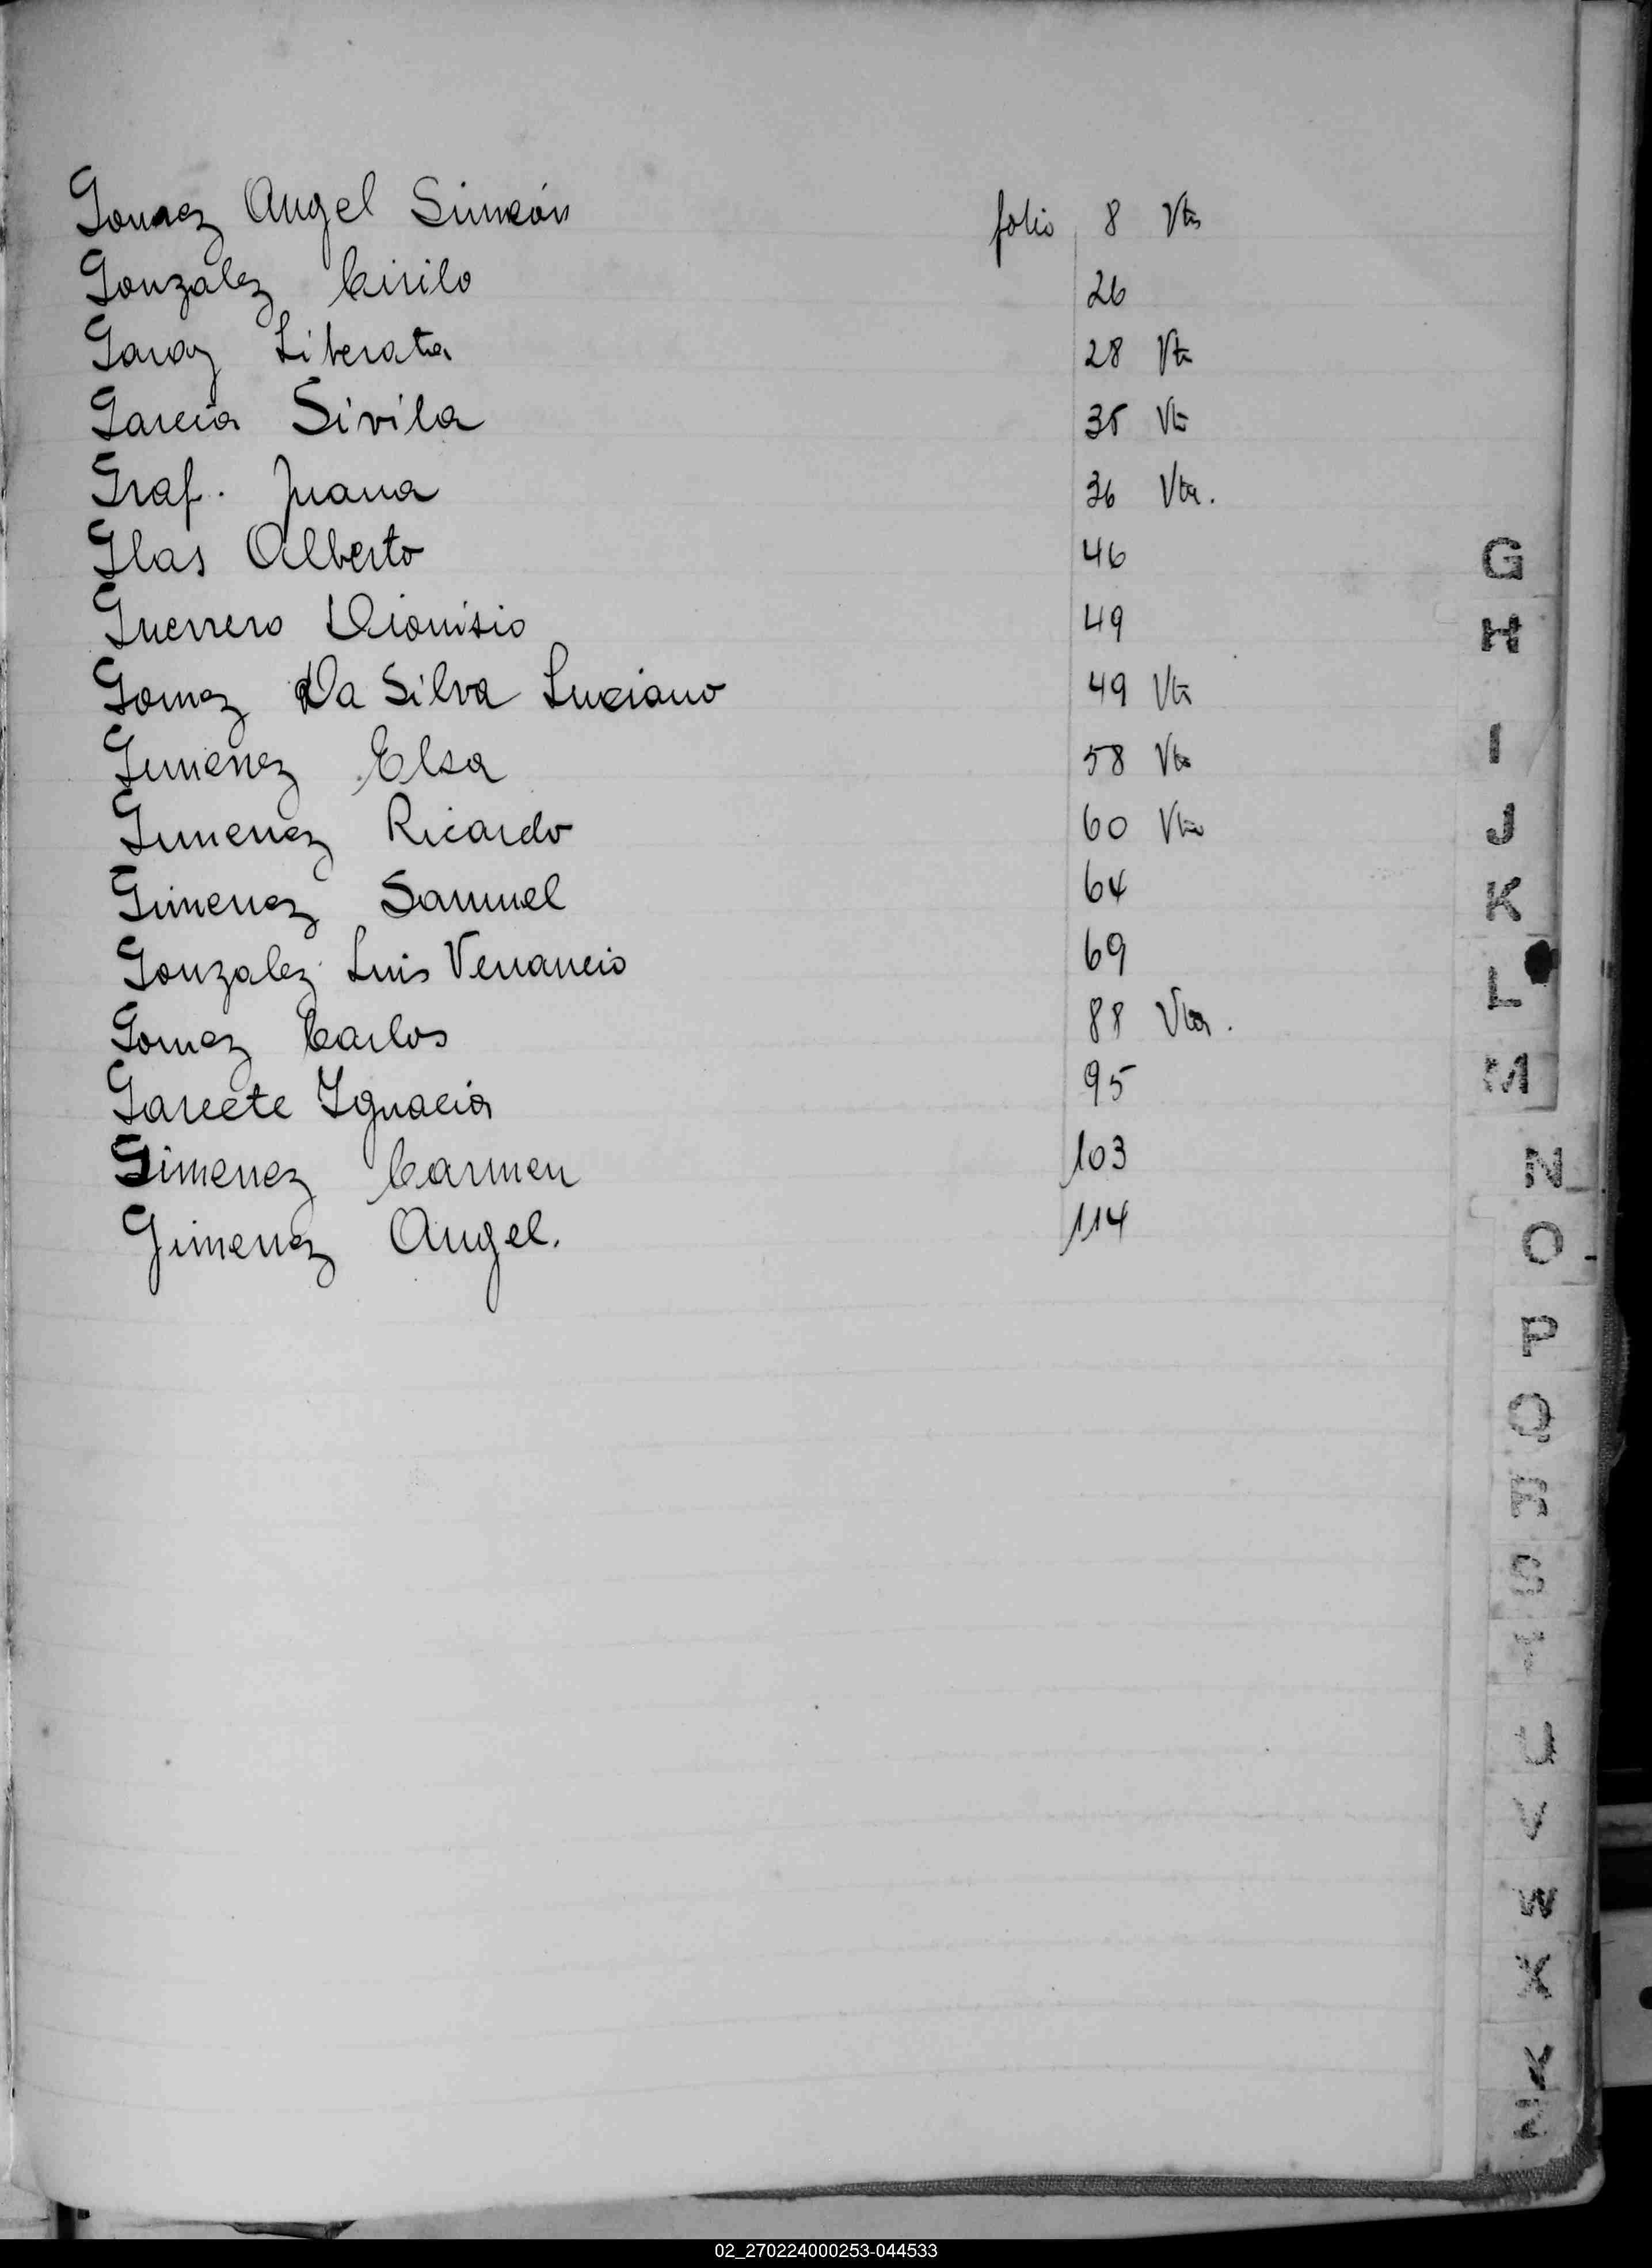 Gomez Angel Simeón folio 8 Vta
Gonzalez Cirilo 26
Garay Liberata 28 Vta
Garcia Sivila 35 Vta
Graf. Juana 36 Vta.
Glas Alberto 46
Guerrero Dionisio 49
Gomez Da Silva Luciano 49 Vta
Gimenez Elsa 58 Vta
Gimenez Ricardo 60 Vta
Gimenez Samuel 64
Gonzalez Luis Venancio 69
Gomez Carlos 88 Vta.
Garcete Ignacia 95
Gimenez Carmen 103
Gimenez Angel. 114
G
H
I
J
K
L
M
N
O
P
Q
R
S
T
U
V
W
X
Y
Z
02_270224000253-044533